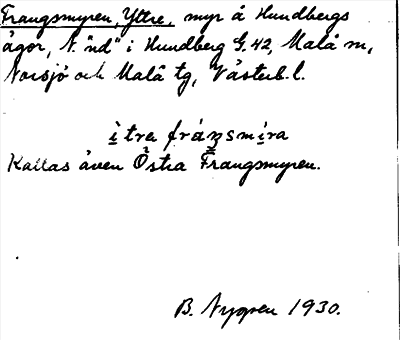 Frangsmyren, Yttre, myr å Hundbergs
ägor, N. "nd" i Hundberg G.42, Malå m,
Norsjö och Malå tg, Västerb. l.
ìtra fráŋsmìra
Kallas även Östra Frangsmyren.
B. Nygren 1930.